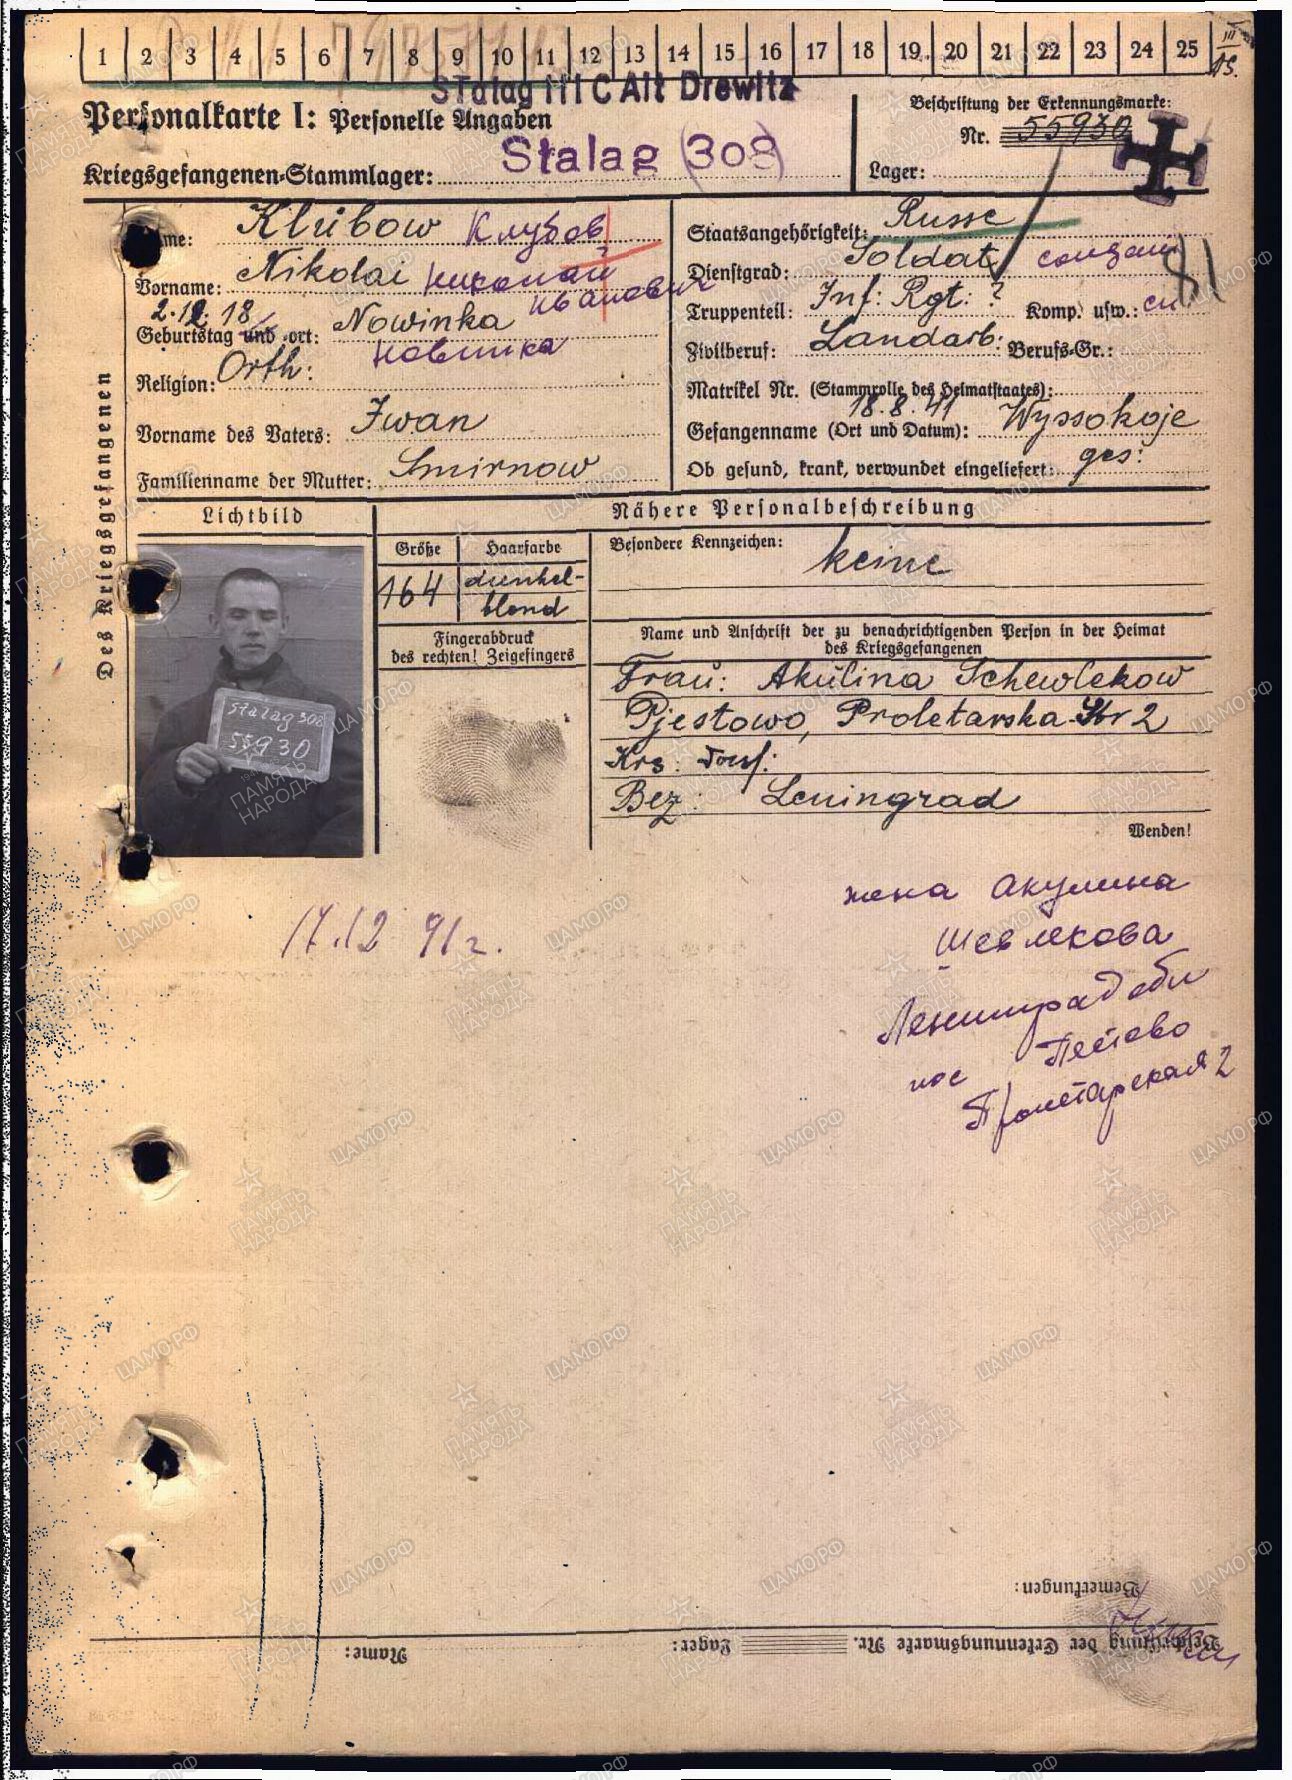 1 2 3 4 5 6 7 8 9 10 11 12 13 14 15 16 17 18 19 20 21 22 23 24 25
III
15.
Stalag III C Alt Drewitz
Personalkarte I: Personelle Angaben
Kriegsgefangenen-Stammlager: Stalag (308)
Beschriftung der Erkennungsmarke:
Nr. 55930
Lager:
Des Kriegsgefangenen
Name: Klubow Клубов
Vorname: Nikolai Николай
Иванович
2.12.18
Geburtstag und -ort: Nowinka
Новинка
Religion: Orth:
Vorname des Vaters: Iwan
Familienname der Mutter: Smirnow
Staatsangehörigkeit: Russe
Dienstgrad: Soldat солдат
Truppenteil: Inf: Rgt: ? Komp. usw.: сп
81
Zivilberuf: Landarb: Berufs-Gr.:
Matrikel Nr. (Stammrolle des Heimatstaates):
Gefangenname (Ort und Datum): 18.8.41 Wyssokoje
Ob gesund, krank, verwundet eingeliefert: ges:
Lichtbild
Stalag 308
55930
Nähere Personalbeschreibung
Größe Haarfarbe
164 dunkel-
blond
Fingerabdruck
des rechten! Zeigefingers
Besondere Kennzeichen: keine
Name und Anschrift der zu benachrichtigenden Person in der Heimat
des Kriegsgefangenen
Frau: Akulina Schewlekow
Pjestowo, Proletarska Str 2
Krs:
Bez: Leningrad
Wenden!
жена Акулина
Шевлекова
Ленинград обл
пос Пестово
Пролетарская 2
17.12 91г.
Bemerkungen:
Name: Lager: Beschriftung der Erkennungsmarke Nr.
ПАМЯТЬ НАРОДА
ЦАМО.РФ